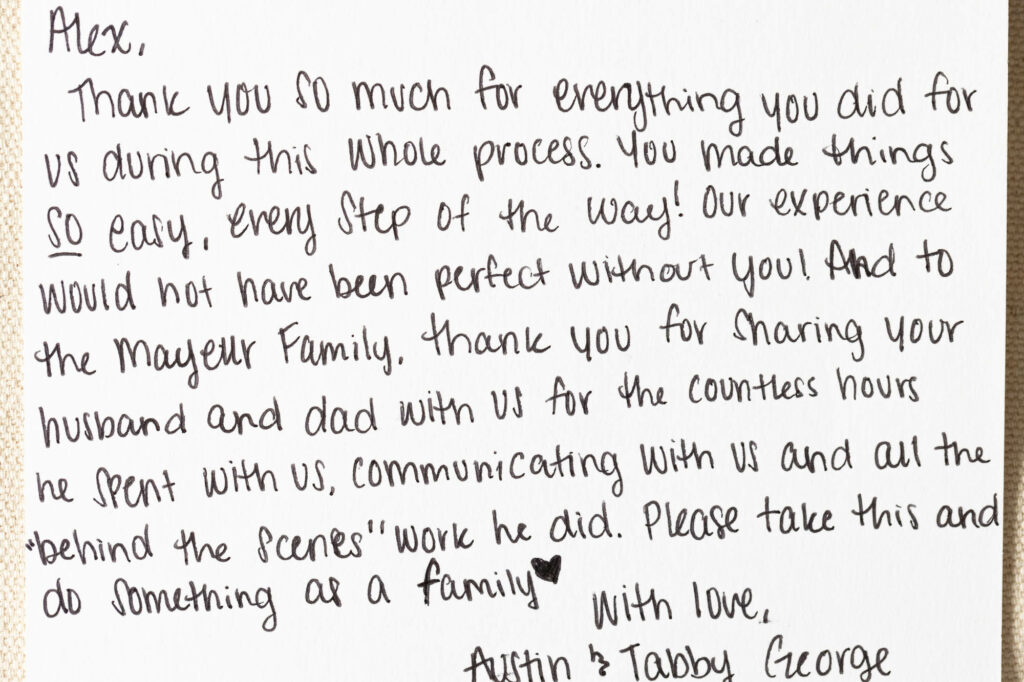 Alex,
Thank you so much for everything you did for
us during this whole process. You made things
so easy, every step of the way! Our experience
would not have been perfect without you! And to
the Mayeur Family, thank you for sharing your
husband and dad with us for the countless hours
he spent with us, communicating with us and all the
"behind the scenes" work he did. Please take this and
do something as a family♥
With love,
Austin & Tabby George